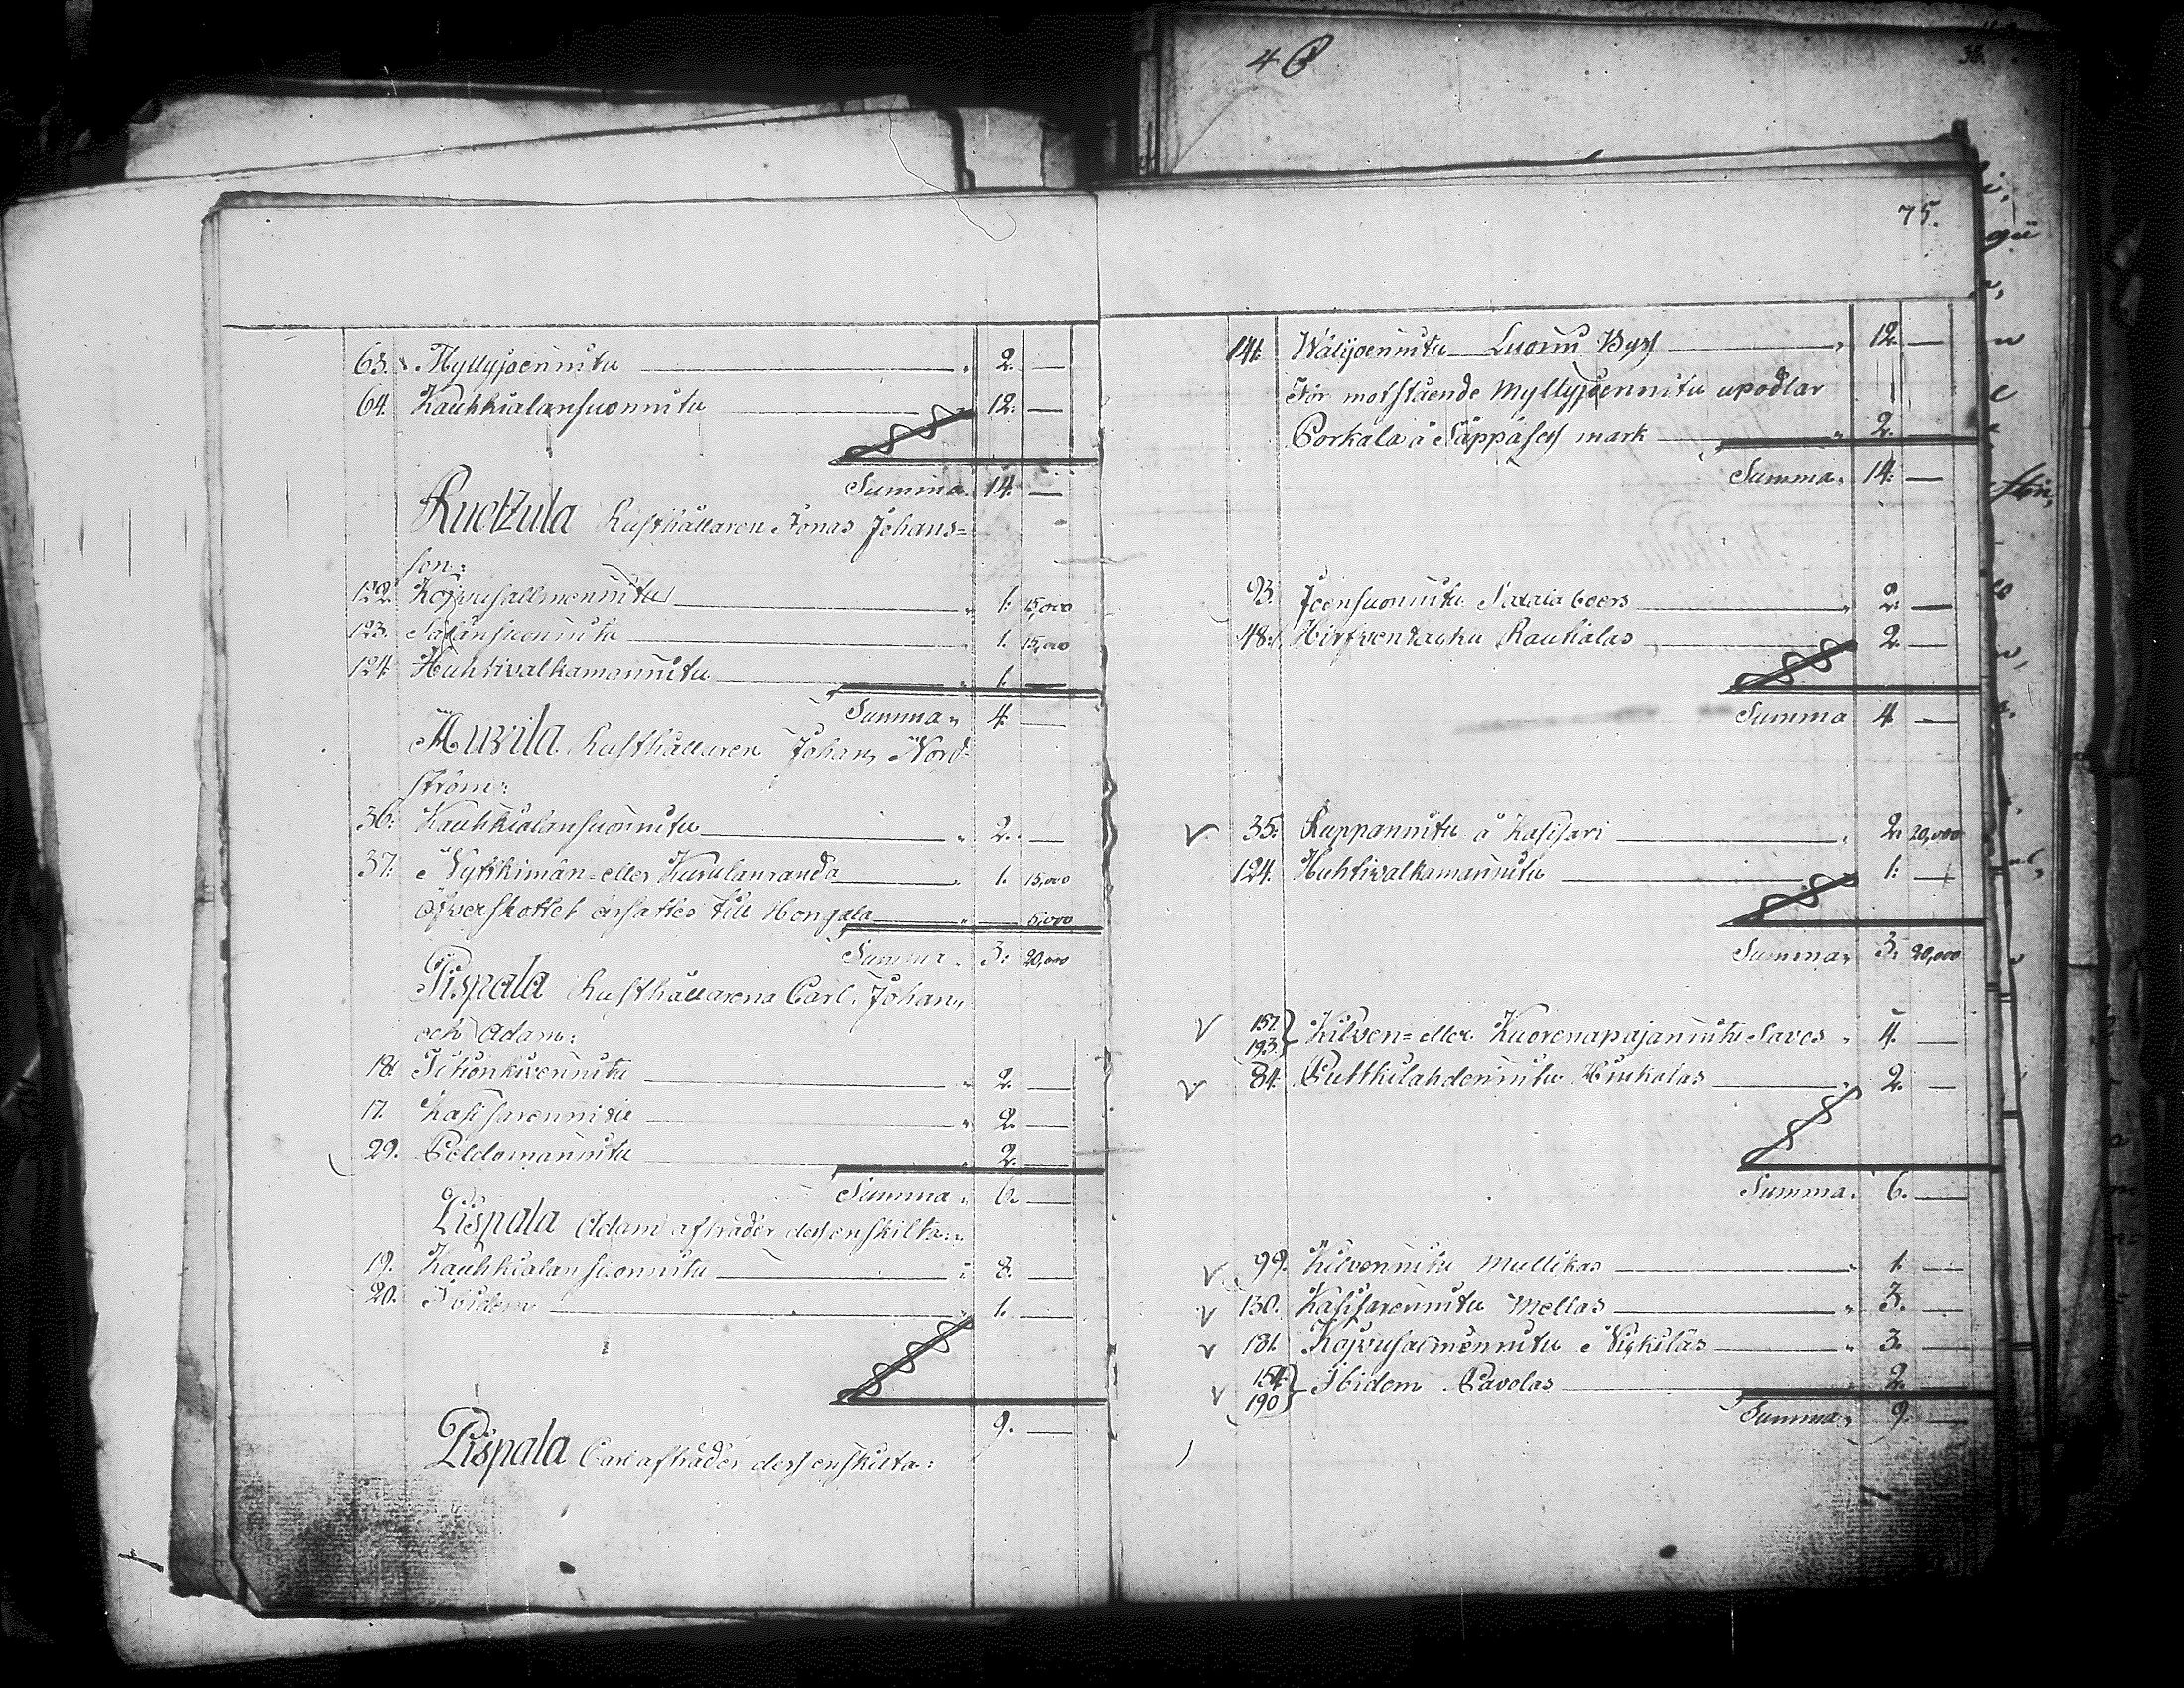 63. Myllyjoennitu 2. —
64. Kauhkialansuonnitu 12. —
Summa. 14. —
Ruotzula Rusthållaren Jonas Johans=
son:
122. Kojvusallmennitu 1. 15,000
123. suonnitu 1. 15,000
124. Huhtivalkamannitu 1. —
Summa. 4. —
Auvila Rusthållaren Johan Nord=
ström:
36. Kauhkialansuonnitu 2. —
37. eller Kurulanranda 1. 15,000
Öfverskottet ersättes till Hongala — 5,000
Summa. 3. 20,000
Pispala Rusthållarena Carl, Johan,
och Adam:
18. 2. —
17. Kasisarennitu 2. —
29. Peldomannitu 2. —
Summa. 6. —
Pispala Adam afträder dess enskilta:
19. Kauhkialansuonnitu 8. —
20. Ibidem 1. —
9. —
Pispala Carl afträder dess enskilta:
46
75.
141. Wälijoennitu Luomi Bys 12. —
För motstående Myllyjoennitu upodlar
Porkala å Säppäses mark 2.
Summa. 14. —
93. Joensuonnitu 2. —
48. Rautialas 2. —
Summa 4. —
35. Ruppannitu å Kasisari 2. 20,000
124. Huhtivalkamannitu 1. —
Summa. 3. 20,000
157. 193. Kilven= eller Kuorenapajannitu Saves 4. —
84. Puttkilahdennitu Hiukalas 2. —
Summa. 6. —
99. Kilvennitu Mullikas 1. —
130. Kasisarennitu Mellas 3. —
181. Kojvusalmennitu Nickilas 3. —
154. 190 Ibidem Pavolas 2. —
Summa. 9. —